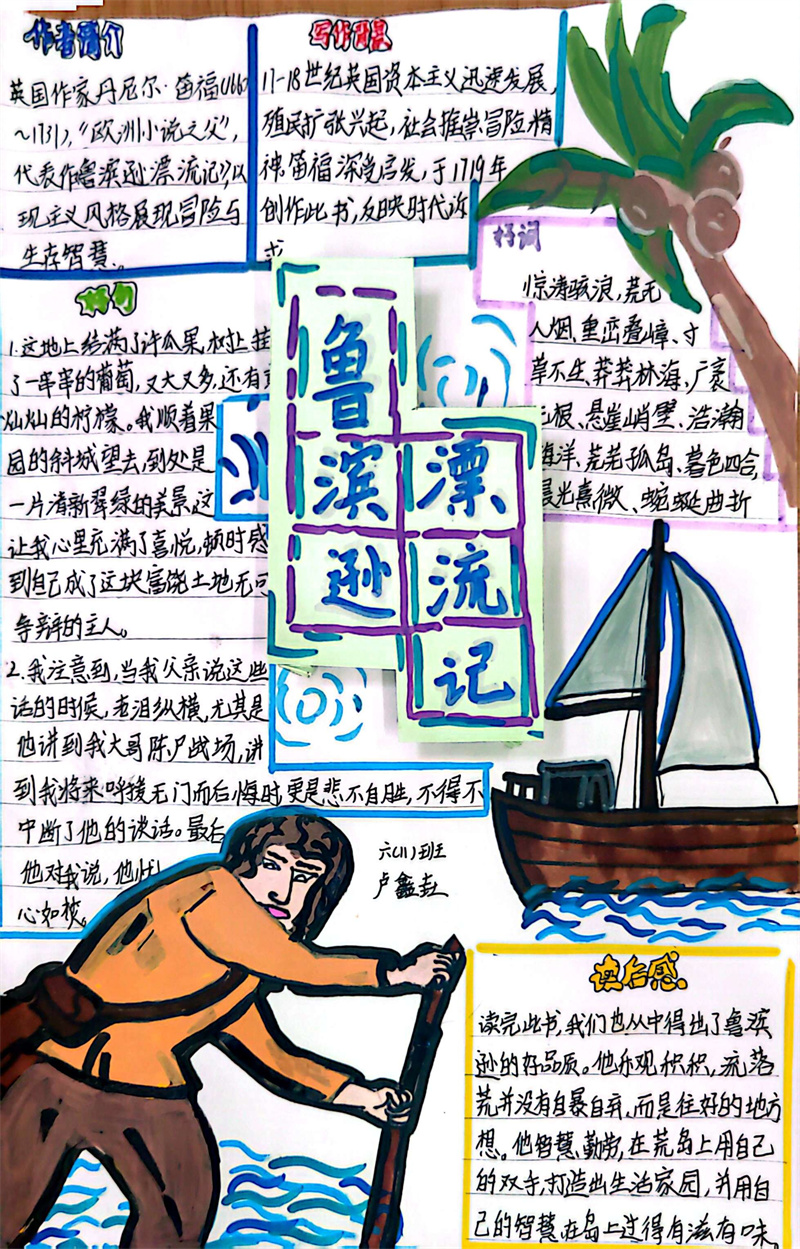 作者简介
英国作家丹尼尔·笛福(1660
~1731),“欧洲小说之父”,
代表作鲁滨逊漂流记》,以
现主义风格展现冒险与
生存智慧。
写作背景
17-18世纪英国资本主义迅速发展,
殖民扩张兴起,社会推崇冒险精
神,笛福深受启发,于1719年
创作此书,反映时代诉
求
好词
惊涛骇浪,荒无
人烟、重峦叠嶂、寸
草不生、莽莽林海、广袤
无垠、悬崖峭壁、浩瀚
海洋、荒芜孤岛、暮色四合,
晨光熹微、蜿蜒曲折
好句
1.这地上结满了许瓜果,树上挂
了一串串的葡萄,又大又多,还有
灿灿的柠檬。我顺着果
园的斜城望去,到处是
一片清新翠绿的美景,这
让我心里充满了喜悦,顿时感
到自己成了这块富饶土地无可
争辩的主人。
2.我注意到,当我父亲说这些
话的时候,老泪纵横,尤其是
他讲到我大哥陈尸战场,讲
到我将来呼援无门而后悔时,更是悲不自胜,不得不
中断了他的谈话。最后
他对我说,他忧
心如焚。
鲁滨逊
漂流记
六(1)班
卢鑫垚
读后感
读完此书,我们也从中得出了鲁滨
逊的好品质。他乐观积积,流落
荒并没有自暴自弃,而是往好的地方
想。他智慧,勤劳,在荒岛上用自己
的双手,打造出生活家园,并用自
己的智慧在岛上过得有滋有味。